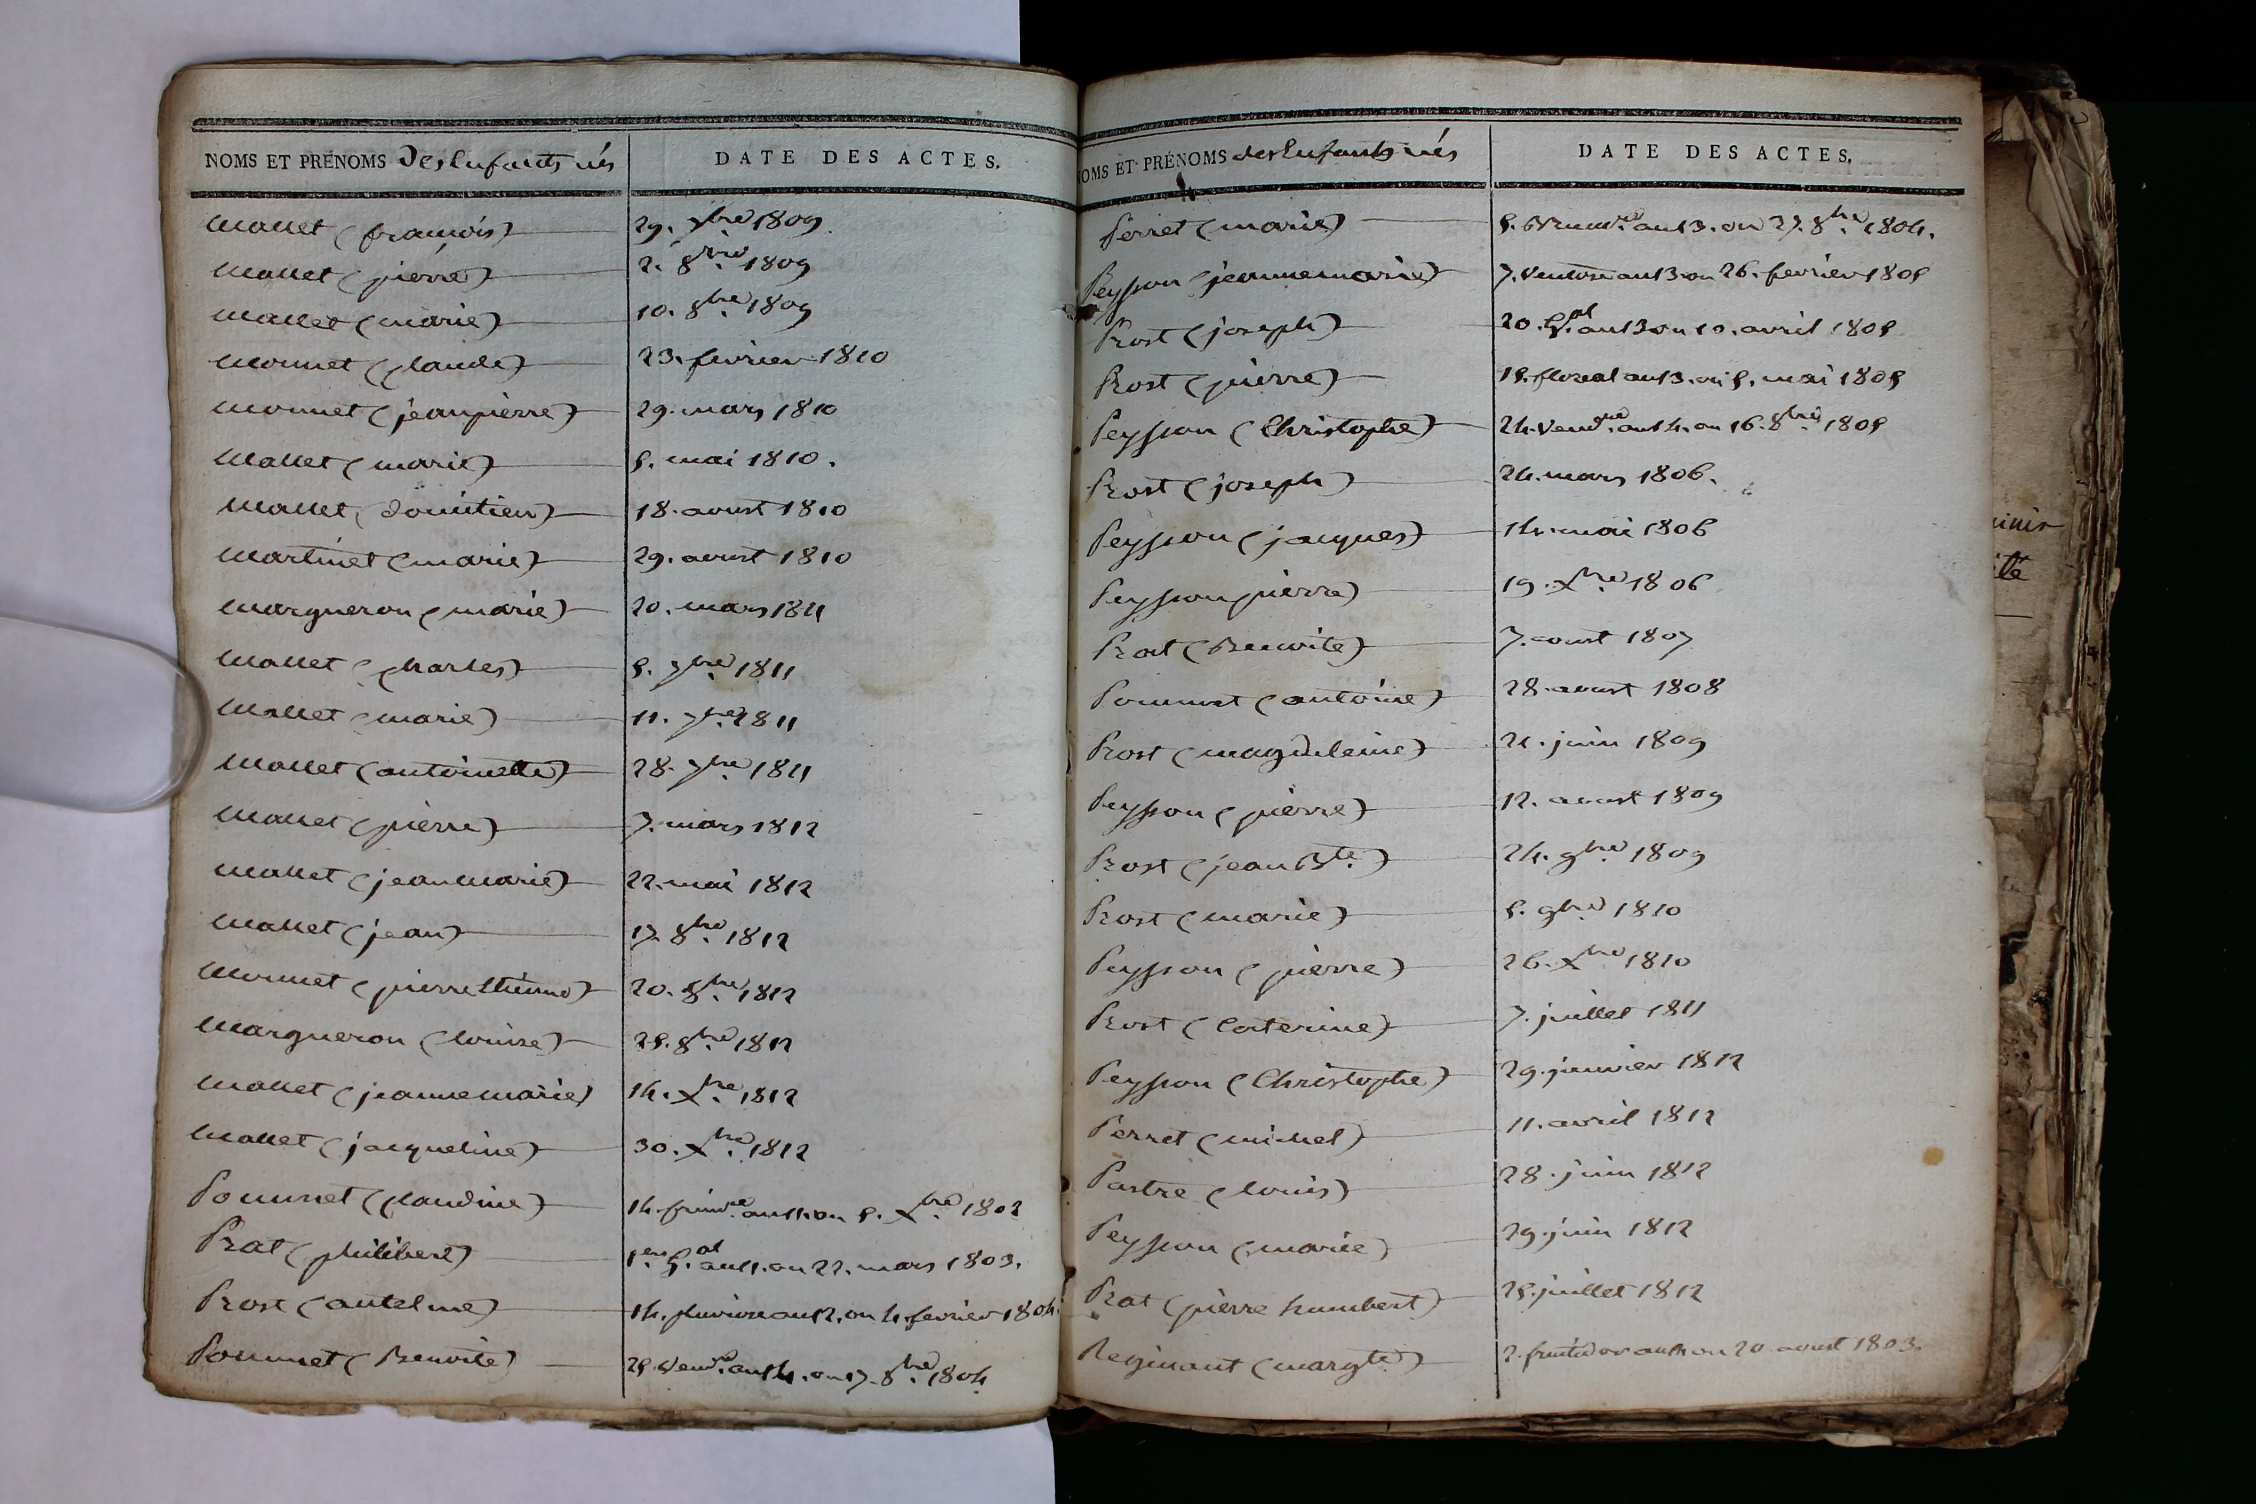 NOMS ET PRÉNOMS des Enfants nés DATE DES ACTES.
Mallet (françois) 29. 7bre 1809
Mallet (pierre) 2. 8bre 1809
Mallet (marie) 10. 8bre 1809
Monnet (Claude) 23. fevrier 1810
Monnet (jeanpierre) 29. mars 1810
Mallet (marie) 5. mai 1810.
Mallet (domitien) 18. aoust 1810
Martinet (marie) 29. aoust 1810
Margueron (marie) 20. mars 1811
Mallet (Charles) 5. 7bre 1811
Mallet (marie) 11. 7bre 1811
Mallet (antoinette) 28. 7bre 1811
Mallet (pierre) 7. mars 1812
Mallet (jeanmarie) 22. mai 1812
Mallet (jean) 17. 8bre 1812
Monnet (pierre Etienne) 20. 8bre 1812
Margueron (louise) 25. 8bre 1812
Mallet (jeannemarie) 14. Xbre 1812
Mallet (jacqueline) 30. Xbre 1812
Pommet (Claudine) 14. frimre an 11. ou 5. Xbre 1802
Prat (philibert) 1er Gal an 11. ou 22. mars 1803.
Prost (antelme) 14. pluviose an 12. ou 4. fevrier 1804.
Pommet (Benoite) 25. Vendre an 14. ou 17. 8bre 1804
NOMS ET PRÉNOMS des Enfants nés DATE DES ACTES.
Perret (marie) 5. Brumre an 13. ou 27. 8bre 1804.
Peysson (jeannemarie) 7. Ventose an 13 ou 26. fevrier 1805
Prost (joseph) 20. Gal an 13 ou 10. avril 1805
Prost (pierre) 15. floreal an 13. ou 5. mai 1805
Peysson (Christophe) 24. Vendre an 14. ou 16. 8bre 1805
Prost (joseph) 24. mars 1806.
Peysson (jacques) 14. mai 1806
Peysson (pierre) 19. Xbre 1806
Prost (Benoite) 7. aoust 1807
Pommet (antoine) 28. aoust 1808
Prost (magdeleine) 21. juin 1809
Peysson (pierre) 12. aoust 1809
Prost (jean Bte.) 24. 9bre 1809
Prost (marie) 5. 9bre 1810
Peysson (pierre) 26. Xbre 1810
Prost (Caterine) 7. juillet 1811
Peysson (Christophe) 29. janvier 1812
Perret (michel) 11. avril 1812
Pastre (louis) 28. juin 1812
Peysson (marie) 29. juin 1812
Prat (pierre humbert) 25. juillet 1812
Reginant (margte) 2. fruitidor an 11 ou 20 aoust 1803.